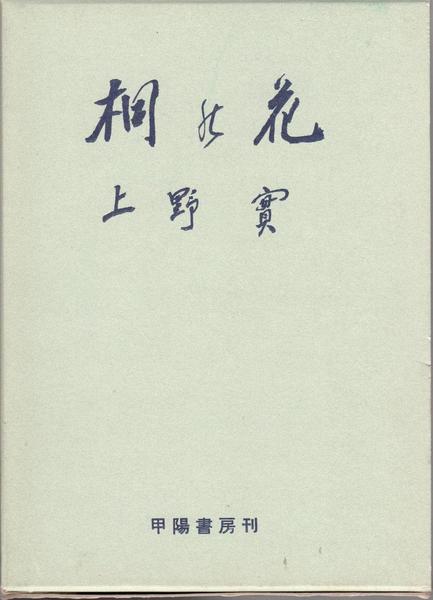 桐の花
上野實
甲陽書房刊